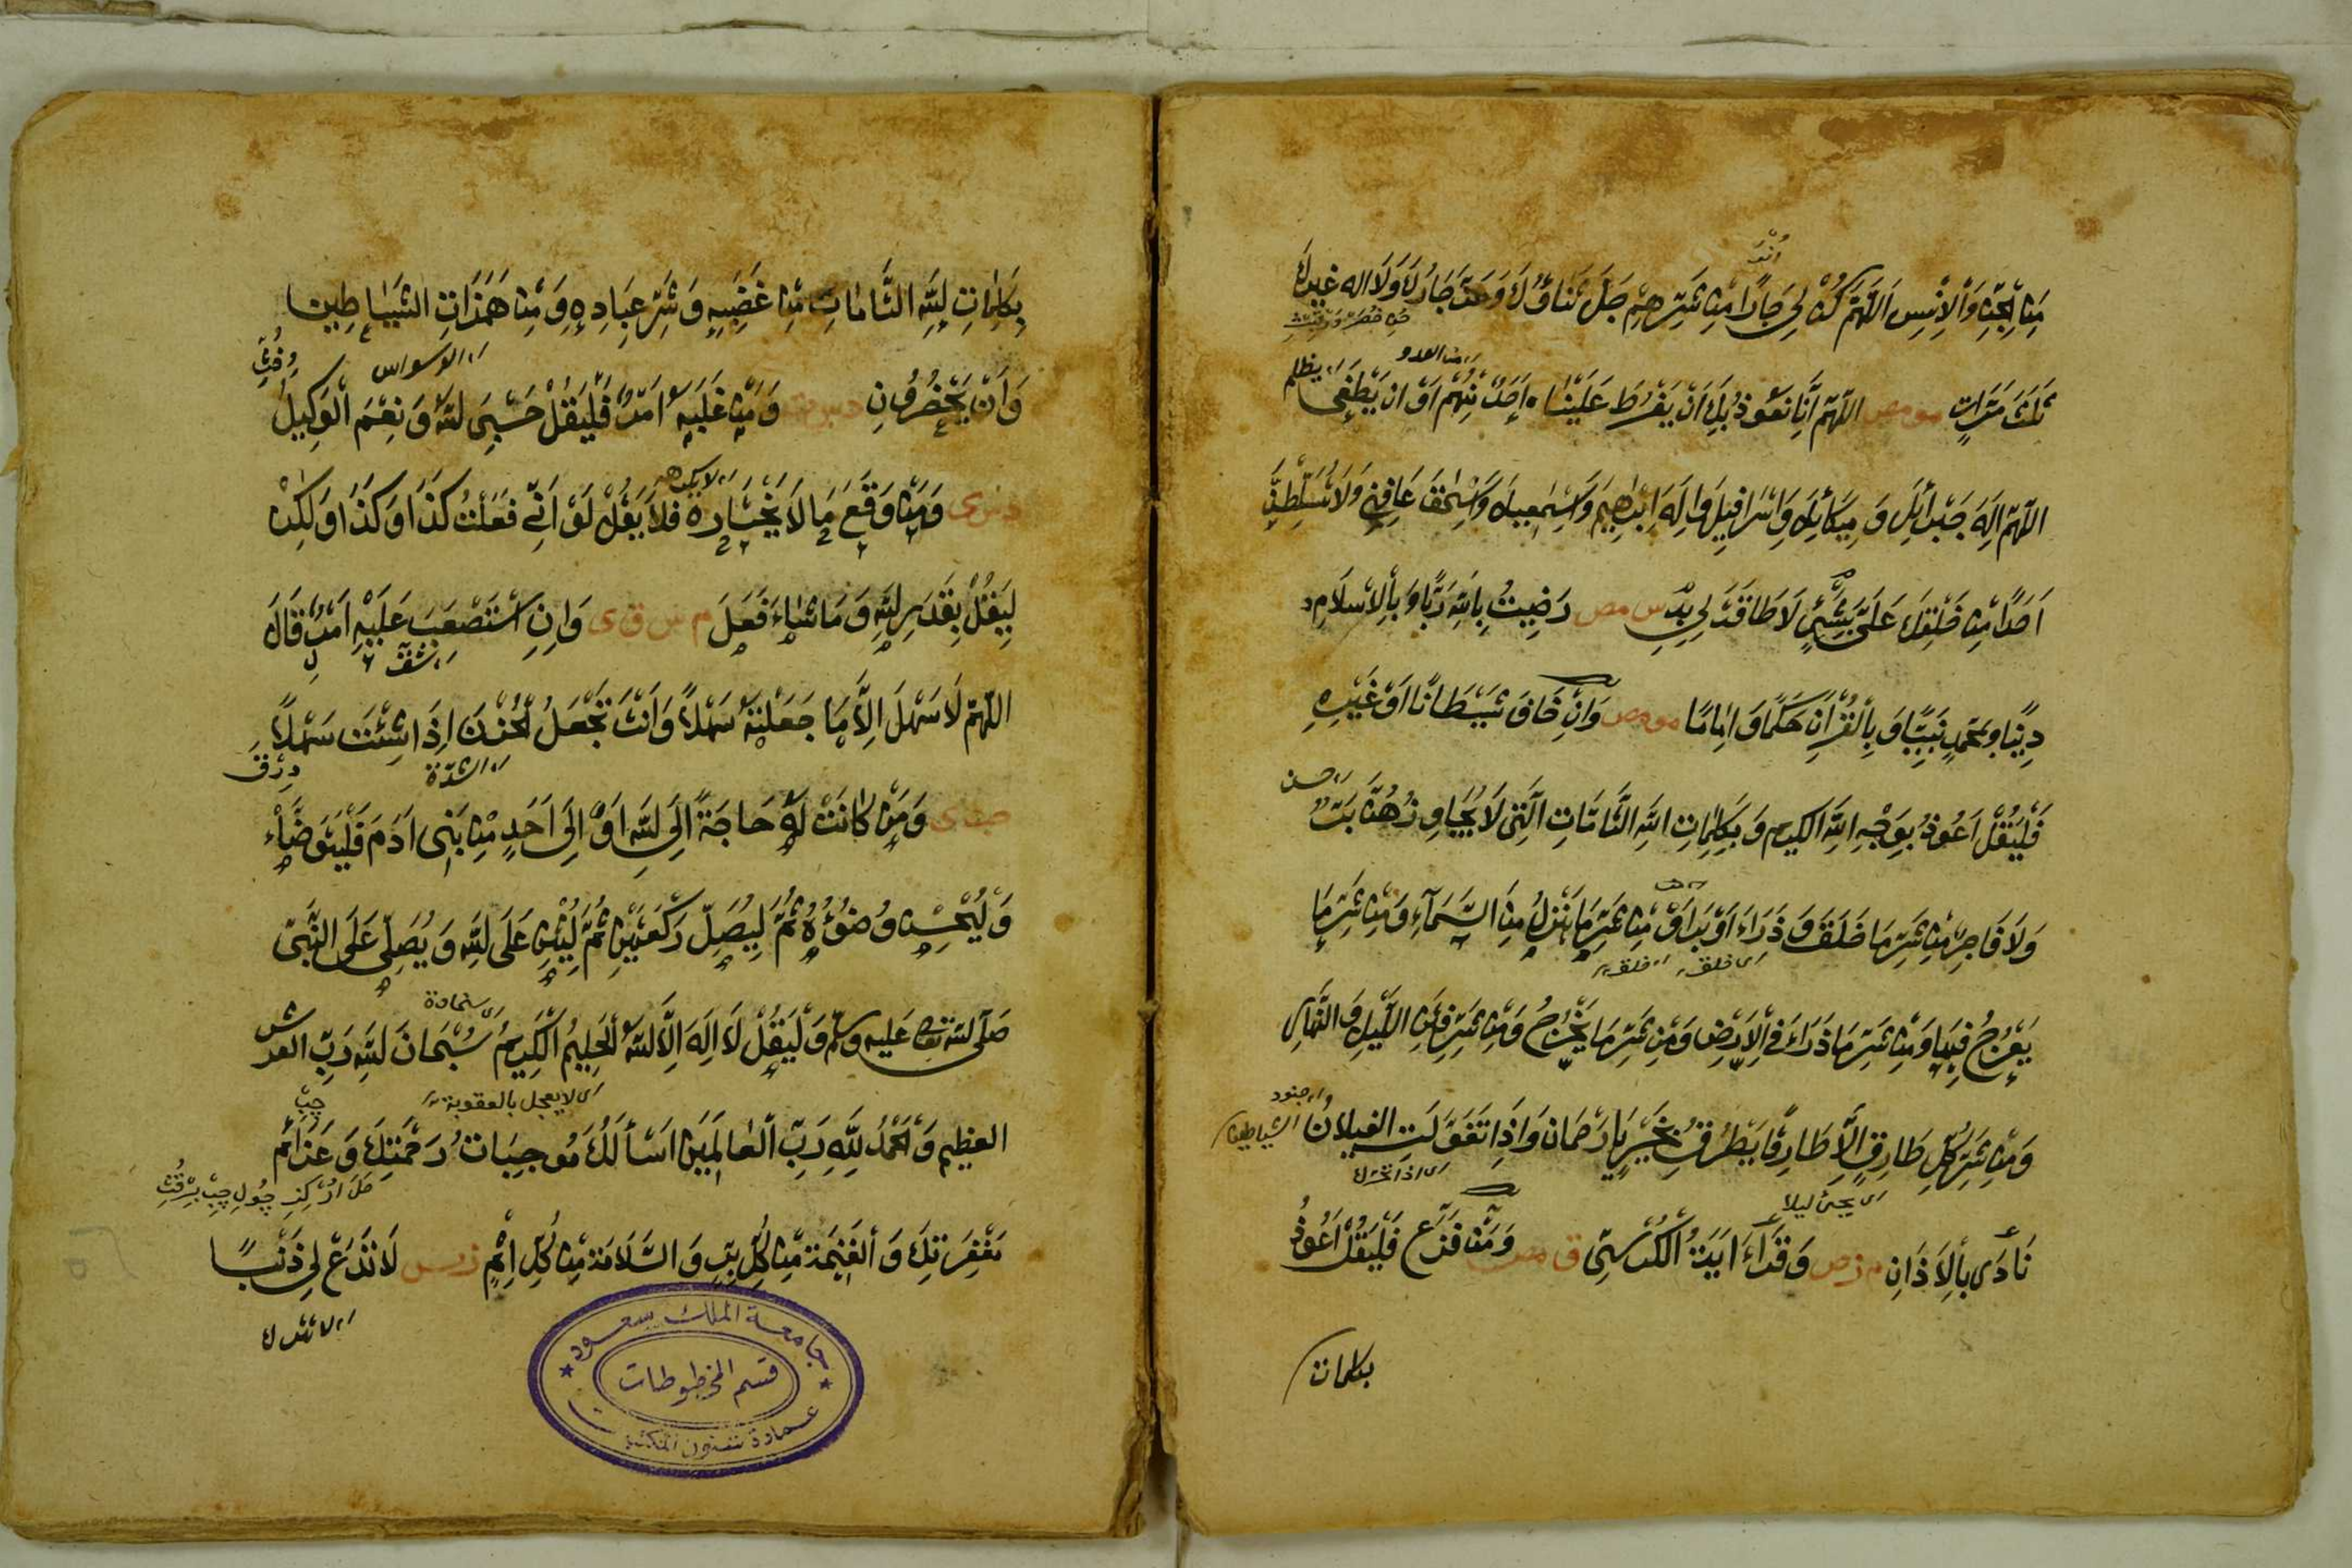 مِنَ الْجِنِّ وَالْاِنْسِ اَللّٰهُمَّ كُنْ لِي جَارًا مِنْ شَرِّهِمْ جَلَّ ثَنَاؤُكَ وَعَزَّ جَارُكَ وَلَا اله غيرك
ثَلٰثَ مَرَّاتٍ مو مص اللّٰهُمَّ اِنَّا نَعُوذُ بِكَ اَنْ يَفْرُطَ عَلَيْنَا اَحَدٌ مِنْهُمْ اَوْ اَنْ يَطْغٰى
اي من العدو
اي يظلم
اللّٰهُمَّ اِلٰهَ جَبْرَائِلَ وَمِيكَائِلَ وَاِسْرَافِيلَ وَاِلٰهَ اِبْرٰهِيمَ وَاِسْمٰعِيلَ وَاِسْحٰقَ عَافِنِي وَلَا تُسَلِّطَنَّ
اَحَدًا مِنْ خَلْقِكَ عَلَيَّ بِشَيْءٍ لَا طَاقَةَ لِي بِهِ مص رَضِيتُ بِاللّٰهِ رَبًّا وَبِالْاِسْلَامِ
دِينًا وَبِمُحَمَّدٍ نَبِيًّا وَبِالْقُرْاٰنِ حَكَمًا وَاِمَامًا مو مص وَاِنْ خَافَ شَيْطَانًا اَوْ غَيْرِهِ
فَلْيَقُلْ اَعُوذُ بِوَجْهِ اللّٰهِ الكَرِيمِ وَبِكَلِمَاتِ اللّٰهِ التَّامَّاتِ الَّتِي لَا يُجَاوِزُهُنَّ بَرٌّ
وَلَا فَاجِرٌ مِنْ شَرِّ مَا خَلَقَ وَذَرَاَ وَبَرَاَ وَمِنْ شَرِّ مَا يَنْزِلُ مِنَ السَّمَاءِ وَمِنْ شَرِّ مَا
اي خلق اي خلق
يَعْرُجُ فِيهَا وَمِنْ شَرِّ مَا ذَرَاَ فِي الْاَرْضِ وَمِنْ شَرِّ مَا يَخْرُجُ وَمِنْ شَرِّ فِتَنِ اللَّيْلِ وَالنَّهَارِ
وَمِنْ شَرِّ كُلِّ طَارِقٍ اِلَّا طَارِقًا يَطْرُقُ بِخَيْرٍ يَا رَحْمَانُ وَاِذَا تَغَوَّلَتِ الغيلَانُ
اي جنود الشياطين
اي يجئ ليلا
نَادَى بِالْاَذَانِ م ز مص وَقَرَاءَ اٰيَةَ الْكُرْسِيِّ وَمَنْ فَزِعَ فَلْيَقُلْ اَعُوذُ
بكلمات
بِكَلِمَاتِ اللّٰهِ التَّامَاتِ مِنْ غَضَبِهِ وَشَرِّ عِبَادِهِ وَمِنْ هَمَزَاتِ الشَّيَاطِينِ
اي الوسواس
وَاَنْ يَحْضُرُونِ وَمَنْ غَلَبَهُ اَمْرٌ فَلْيَقُلْ حَسْبِيَ اللّٰهُ وَنِعْمَ الْوَكِيلُ
د س ى وَمَنْ وَقَعَ مَا لَا يَخْتَارُهُ فَلَا يَقُلْ لَوْ اَنِّي فَعَلْتُ كَذَا وَكَذَا وَلٰكِنْ
لِيَقُلْ بِقَدَرِ اللّٰهِ وَمَا شَاءَ فَعَلَ م س ق ى وَاِنِ اسْتَصْعَبَ عَلَيْهِ اَمْرٌ قَالَ
اي شق
اللّٰهُمَّ لَا سَهْلَ اِلَّا مَا جَعَلْتَهُ سَهْلًا وَاَنْتَ تَجْعَلُ الْحُزْنَ اِذَا شِئْتَ سَهْلًا
اي الشدة
وَمَنْ كَانَتْ لَهُ حَاجَةٌ اِلَى اللّٰهِ اَوْ اِلٰى اَحَدٍ مِنْ بَنِي اٰدَمَ فَلْيَتَوَضَّاْء
وَلْيُحْسِنْ وُضُوءَهُ ثُمَّ لِيُصَلِّ رَكْعَتَيْنِ ثُمَّ لِيُثْنِ عَلَى اللّٰهِ وَيُصَلِّي عَلَى النَّبِيِّ
صَلَّى اللّٰهُ تعالى عَلَيه وسلم وَلْيَقُلْ لَا اِلٰهَ اِلَّا اللّٰهُ الْحَلِيمُ الْكَرِيمُ سُبْحَانَ اللّٰهِ رَبِّ العرش
اي لا يعجل بالعقوبة
العظيمِ وَالْحَمْدُ لِلّٰهِ رَبِّ الْعَالَمِينَ اَسْاَلُكَ مُوجِبَاتِ رَحْمَتِكَ وَعَزَائِمَ
مَغْفِرَتِكَ وَالْغَنِيمَةَ مِنْ كُلِّ بِرٍّ وَالسَّلَامَةَ مِنْ كُلِّ اِثْمٍ لَا تَدَعْ لِي ذَنْبًا
اي لا تترك
جامعة الملك سعود
قسم المخطوطات
عمادة شئون المكتبات